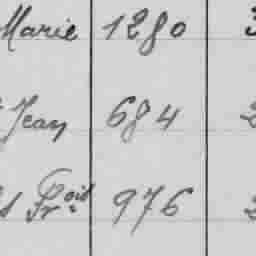 Marie 1280 3
Jean 684 2
Fr.ois 976 2